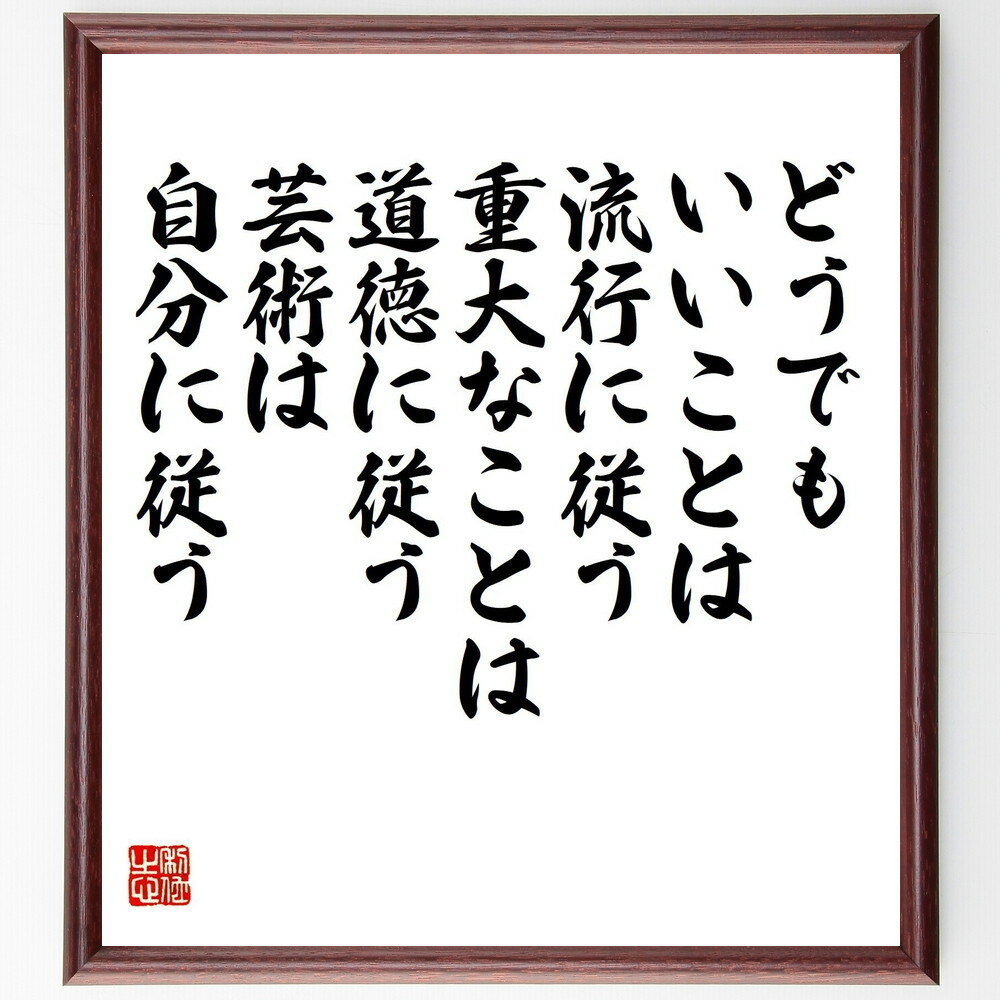 どうでも
いいことは
流行に従う
重大なことは
道徳に従う
芸術は
自分に従う